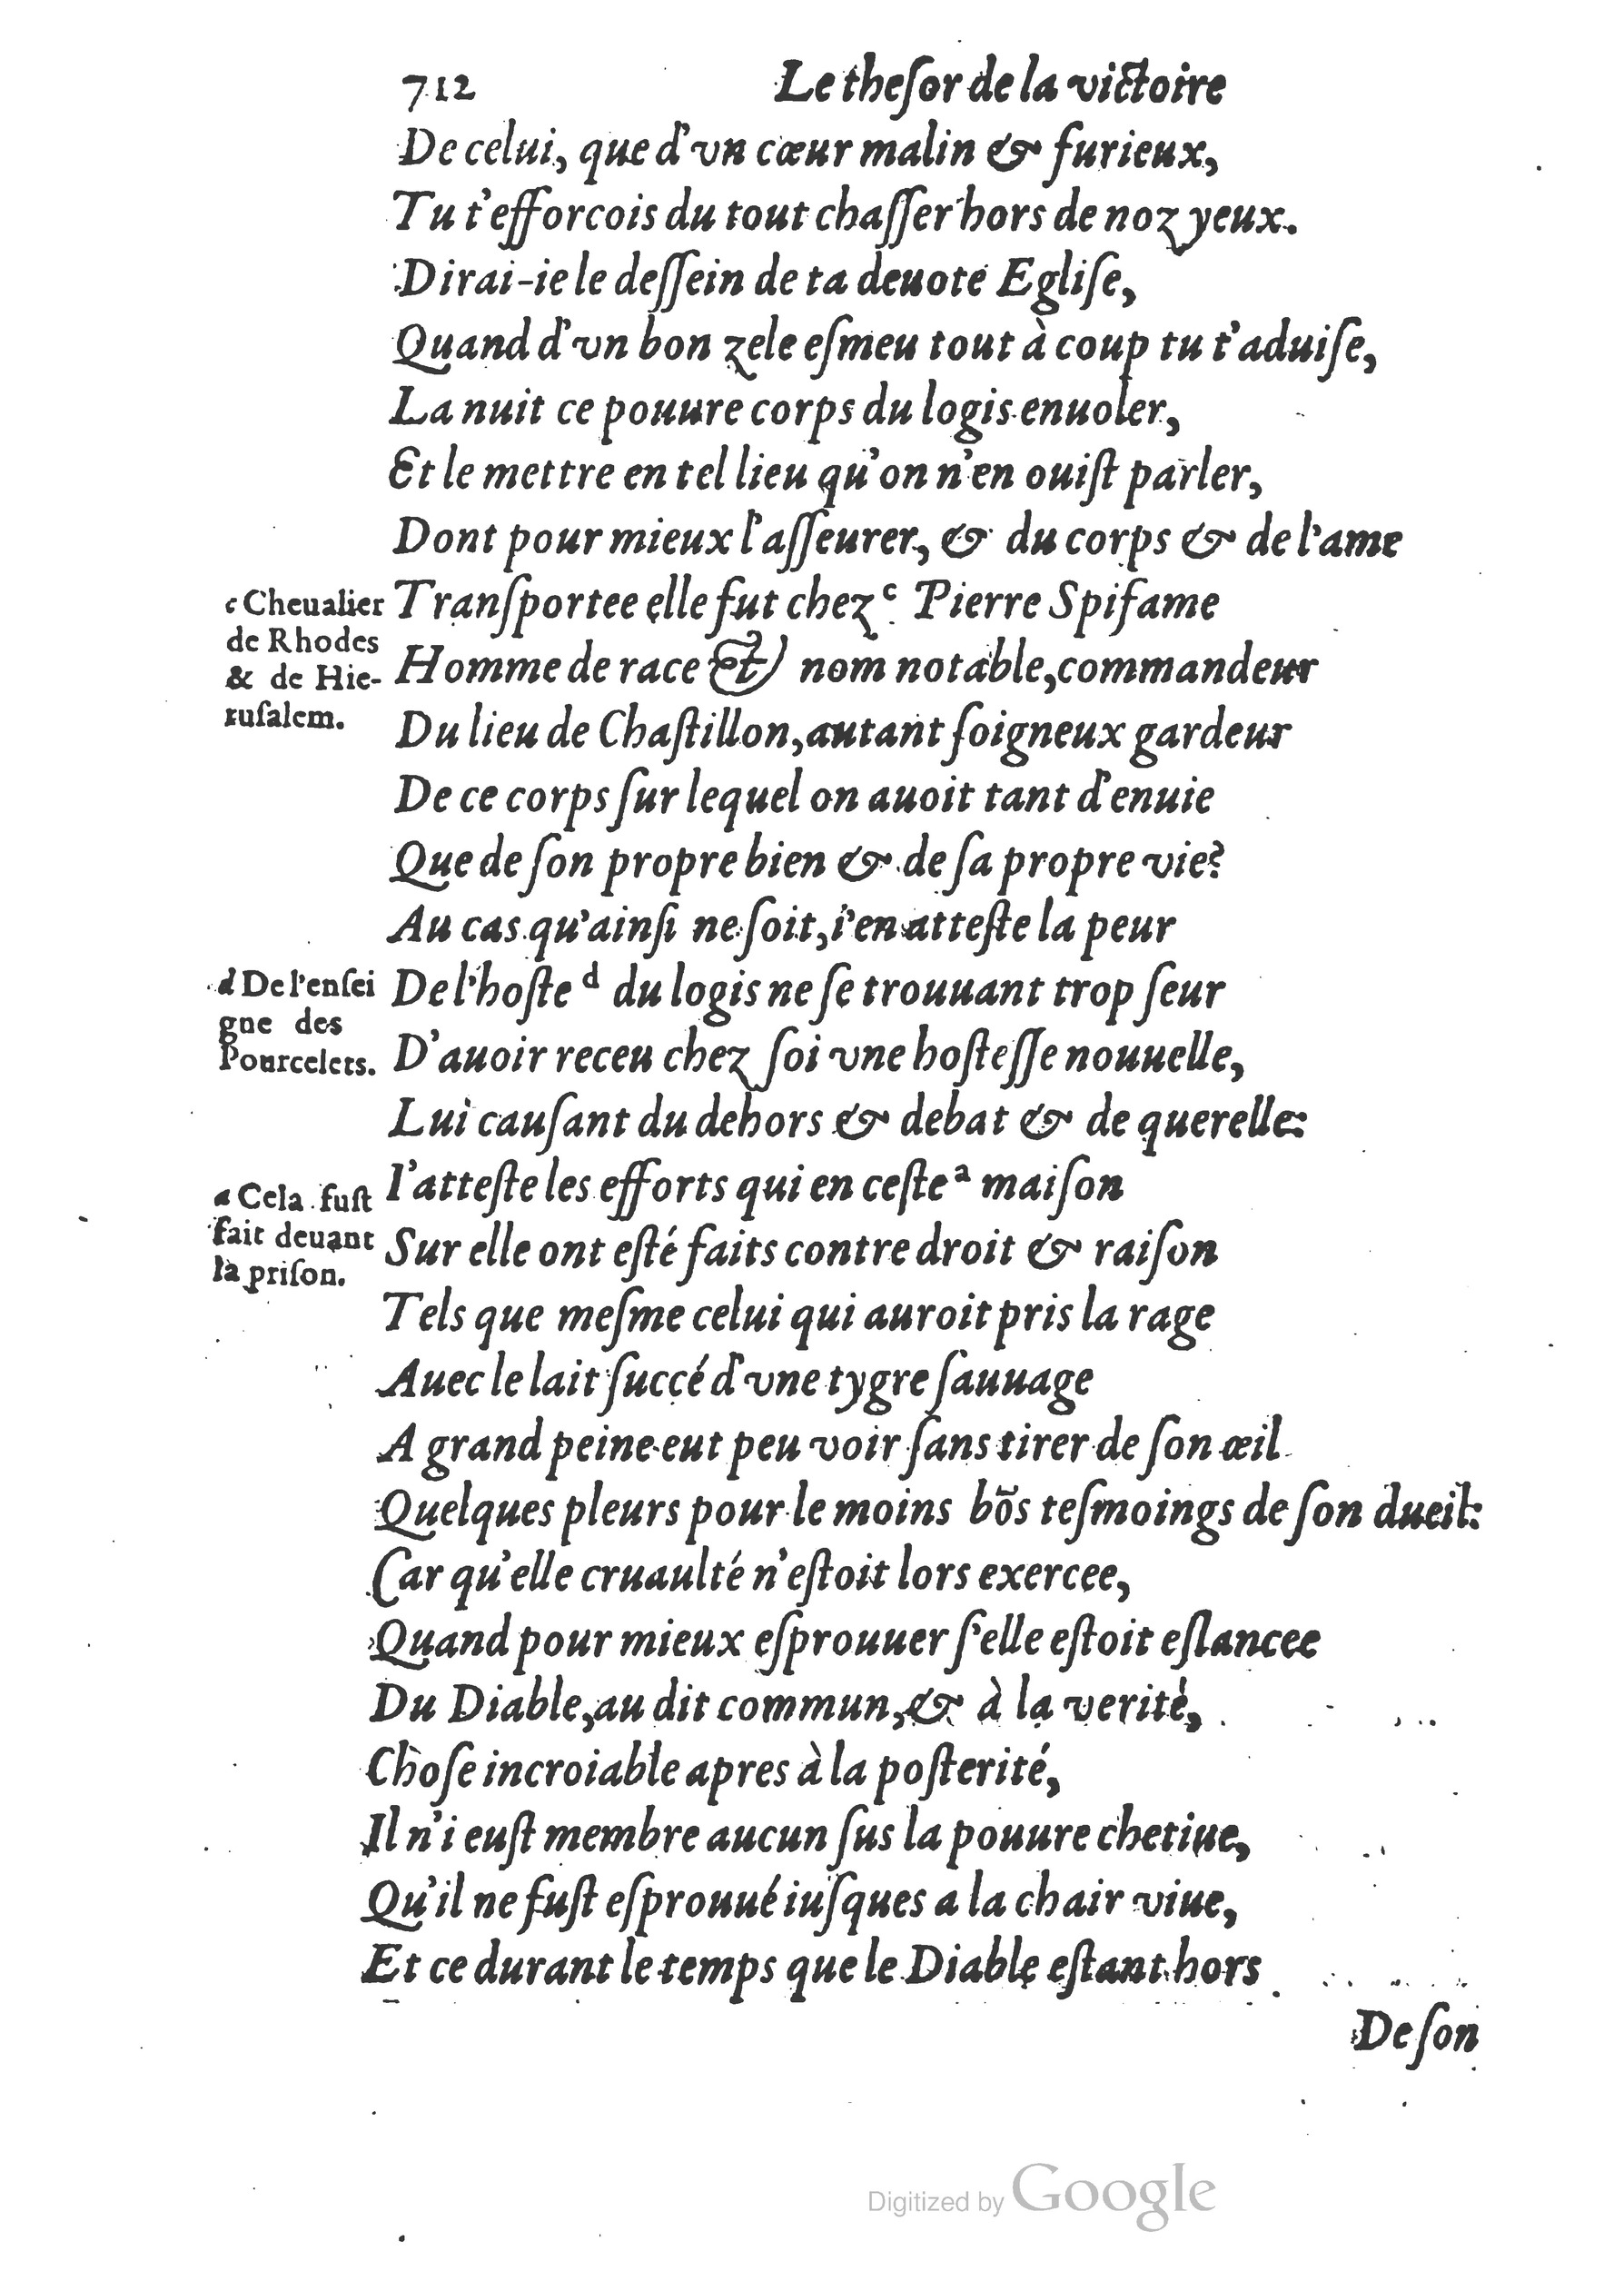 712 Le theſor de la victoire
De celui, que d'vn cœur malin & furieux,
Tu t'efforcois du tout chaſſer hors de noz yeux.
Dirai-ie le deſſein de ta deuote Egliſe,
Quand d'vn bon zele eſmeu tout à coup tu t'aduiſe,
La nuit ce pouure corps du logis enuoler,
Et le mettre en tel lieu qu'on n'en ouiſt parler,
Dont pour mieux l'aſſeurer, & du corps & de l'ame
Tranſportee elle fut chez c Pierre Spifame
Homme de race & nom notable, commandeur
Du lieu de Chaſtillon, autant ſoigneux gardeur
De ce corps ſur lequel on auoit tant d'enuie
Que de ſon propre bien & de ſa propre vie?
Au cas qu'ainſi ne ſoit, i'en atteſte la peur
De l'hoſte d du logis ne ſe trouuant trop ſeur
D'auoir receu chez ſoi vne hoſteſſe nouuelle,
Lui cauſant du dehors & debat & de querelle:
I'atteſte les efforts qui en ceſte a maiſon
Sur elle ont eſté faits contre droit & raiſon
Tels que meſme celui qui auroit pris la rage
Auec le lait ſuccé d'vne tygre ſauuage
A grand peine eut peu voir ſans tirer de ſon œil
Quelques pleurs pour le moins bõs teſmoings de ſon dueil:
Car qu'elle cruaulté n'eſtoit lors exercee,
Quand pour mieux eſprouuer ſ'elle eſtoit eſlancee
Du Diable, au dit commun, & à la verité,
Choſe incroiable apres à la poſterité,
Il n'i euſt membre aucun ſus la pouure chetiue,
Qu'il ne fuſt eſprouué iuſques a la chair viue,
Et ce durant le temps que le Diable eſtant hors
De ſon
c Cheualier
de Rhodes
& de Hie-
ruſalem.
d De l'enſei
gne des
Pourcelets.
a Cela fuſt
fait deuant
la priſon.
Digitized by Google